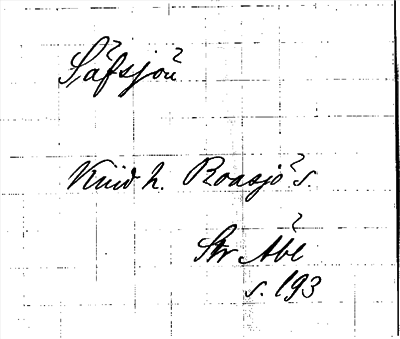 Säfsjön
Kind h. Roasjö s.
Str Abl
s. 193